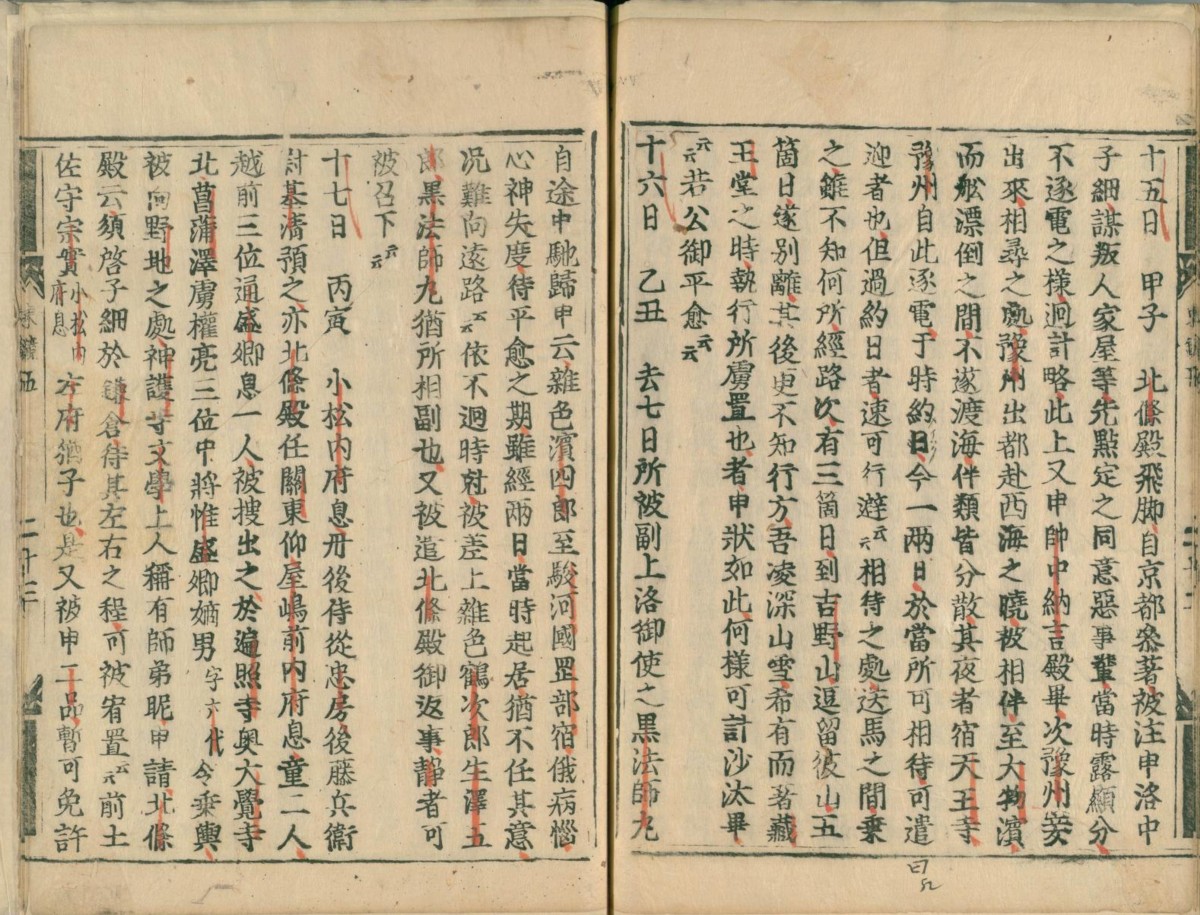 十五日　甲子　北條殿飛脚自京都參著被注申洛中
子細謀叛人家屋等先點定之同意惡事輩當時露顯分
不逐電之樣廻計略此上又申帥中納言殿畢次豫州妾
出來相尋之處豫州出都赴西海之曉被相伴至大物濱
而舩漂倒之間不遂渡海伴類皆分散其夜者宿天王寺
豫州自此逐電于時約日今一兩日於當所可相待可遣
迎者也但過約日者速可行避云云相待之處送馬之間乗
之雖不知何所經路次有三箇日到吉野山逗留彼山五
箇日遂別離其後更不知行方吾凌深山雪希有而著藏
王堂之時執行所虜置也者申狀如此何樣可計沙汰畢
云云若公御平愈云云
十六日　乙丑　去七日所被副上洛御使之黑法師丸
自途中馳歸申云雜色濱四郎至駿河國罡部宿俄病惱
心神失度待平愈之期雖經兩日當時起居猶不任其意
况難向遠路云云依不廻時尅被差上雜色鶴次郎生澤五
郎黑法師丸猶所相副也又被遣北條殿御返事靜者可
被召下云云
十七日　丙寅　小松内府息丹後侍從忠房後藤兵衛
尉基清預之亦北條殿任關東仰屋嶋前内府息童二人
越前三位通盛卿息一人被搜出之於遍照寺奥大覺寺
北菖蒲澤虜權亮三位中將惟盛卿嫡男字六代令乗輿
被向野地之處神護寺文學上人稱有師弟昵申請北條
殿云須啓子細於鎌倉待其左右之程可被宥置云云前土
佐守宗實小松内府息左府猶子也是又被申二品暫可免許
吾妻鏡五
二十三